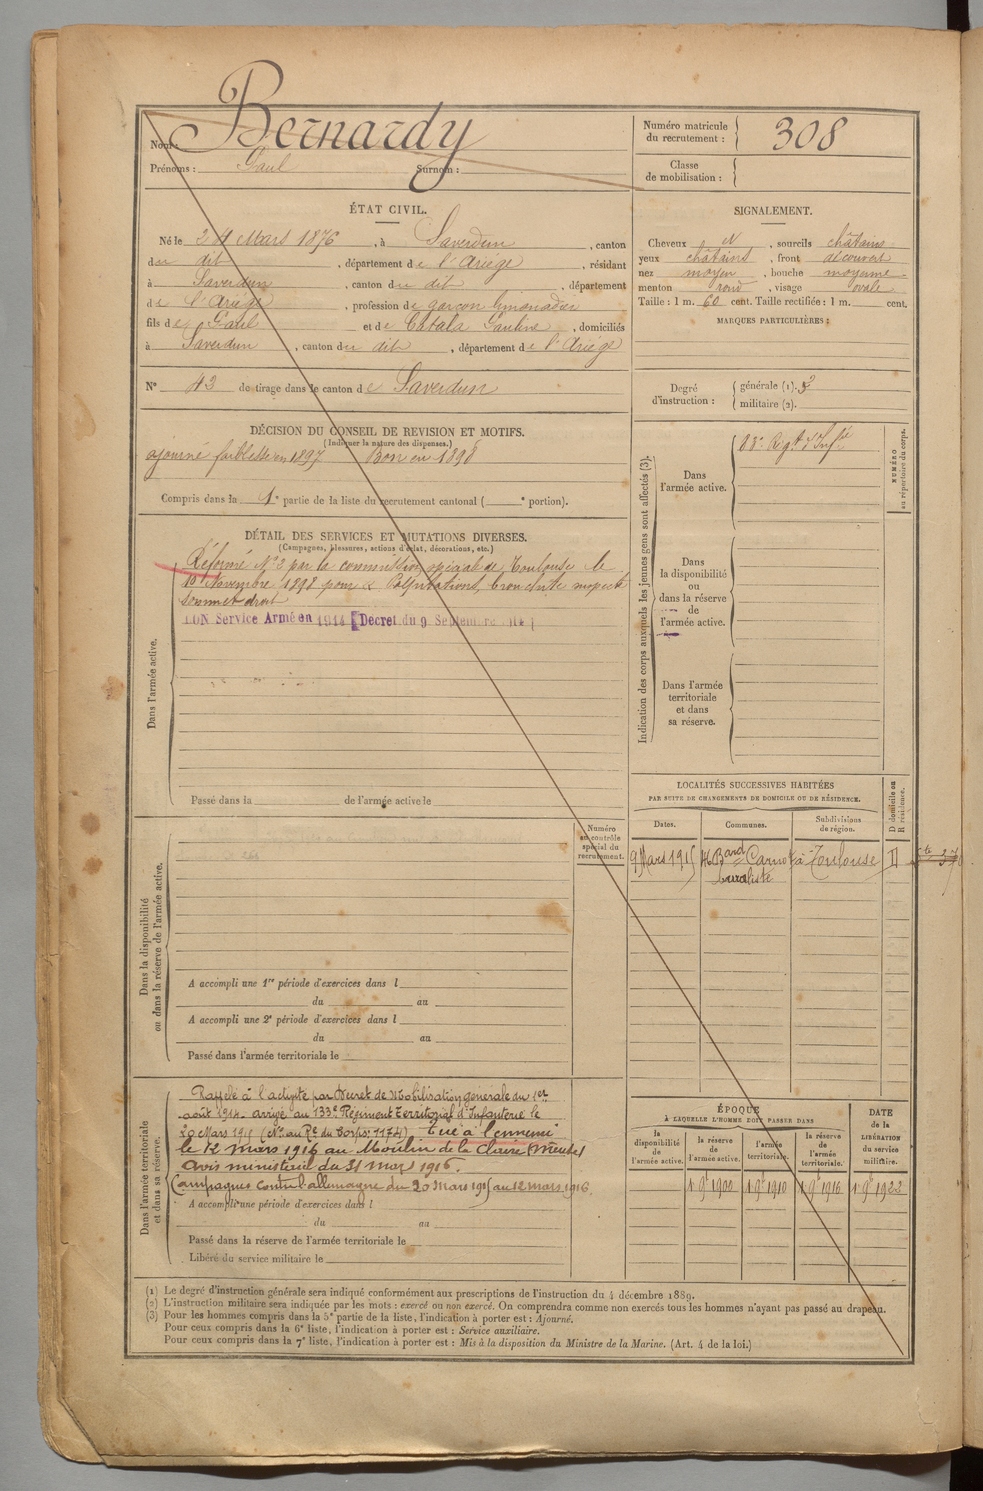 Nom : Bernardy
Prénoms : Paul Surnom :
Numéro matricule du recrutement : 308
Classe de mobilisation :
ÉTAT CIVIL.
Né le 24 Mars 1876, à Saverdun, canton
du dit, département de l'Ariège, résidant
à Saverdun, canton du dit, département
de l'Ariège, profession de garçon limonadier
fils de Paul et de Catala Pauline, domiciliés
à Saverdun, canton du dit, département de l'Ariège
N° 43 de tirage dans le canton de Saverdun
SIGNALEMENT.
Cheveux N, sourcils châtains
yeux châtains, front découvert
nez moyen, bouche moyenne
menton rond, visage ovale
Taille : 1 m. 60 cent. Taille rectifiée : 1 m. cent.
MARQUES PARTICULIÈRES :
Degré d'instruction : générale (1). 3
militaire (2).
DÉCISION DU CONSEIL DE REVISION ET MOTIFS.
(Indiquer la nature des dispenses.)
ajourné faiblesse en 1897 Bon en 1898
Compris dans la 1e partie de la liste du recrutement cantonal ( e portion).
DÉTAIL DES SERVICES ET MUTATIONS DIVERSES.
(Campagnes, blessures, actions d'éclat, décorations, etc.)
Dans l'armée active.
Réformé N° 2 par la commission spéciale de Toulouse le
10 Novembre 1898 pour palpitations, bronchite
sommet droit
BON Service Armé en 1914 [Decret du 9 Septembre 1914]
Passé dans la de l'armée active le
Indication des corps auxquels les jeunes gens sont affectés (3).
Dans l'armée active.
Régt d'Infie
NUMÉRO au répertoire du corps.
Dans la disponibilité ou dans la réserve de l'armée active.
Dans l'armée territoriale et dans sa réserve.
LOCALITÉS SUCCESSIVES HABITÉES
PAR SUITE DE CHANGEMENTS DE DOMICILE OU DE RÉSIDENCE.
Dates. Communes. Subdivisions de région. D domicile ou R résidence.
9 Mars 1915 Bard Carnot à Toulouse
buraliste
Dans la disponibilité ou dans la réserve de l'armée active.
Numéro au contrôle spécial du recrutement.
A accompli une 1re période d'exercices dans l
du au
A accompli une 2e période d'exercices dans l
du au
Passé dans l'armée territoriale le
Dans l'armée territoriale et dans sa réserve.
Rappelé à l'activité par Décret de Mobilisation générale du 1er
août 1914. arrivé au 133e Régiment Territorial d'Infanterie le
20 Mars 1915 (No au Re du Corps: 1174) Tué à l'ennemi
le 12 mars 1916 au Moulin de la Claire (Meuse)
Avis ministériel du 31 mars 1916.
Campagnes contre l'allemagne du 20 Mars 1915 au 12 mars 1916
A accompli une période d'exercices dans l
du au
Passé dans la réserve de l'armée territoriale le
Libéré du service militaire le
ÉPOQUE
À LAQUELLE L'HOMME DOIT PASSER DANS
la disponibilité de l'armée active. la réserve de l'armée active. l'armée territoriale. la réserve de l'armée territoriale. DATE de la LIBÉRATION du service militaire.
1 9bre 1900 1 9bre 1910 1 9bre 1916 1 9bre 1923
(1) Le degré d'instruction générale sera indiqué conformément aux prescriptions de l'instruction du 4 décembre 1889.
(2) L'instruction militaire sera indiquée par les mots : exercé ou non exercé. On comprendra comme non exercés tous les hommes n'ayant pas passé au drapeau.
(3) Pour les hommes compris dans la 5e partie de la liste, l'indication à porter est : Ajourné.
Pour ceux compris dans la 6e liste, l'indication à porter est : Service auxiliaire.
Pour ceux compris dans la 7e liste, l'indication à porter est : Mis à la disposition du Ministre de la Marine. (Art. 4 de la loi.)